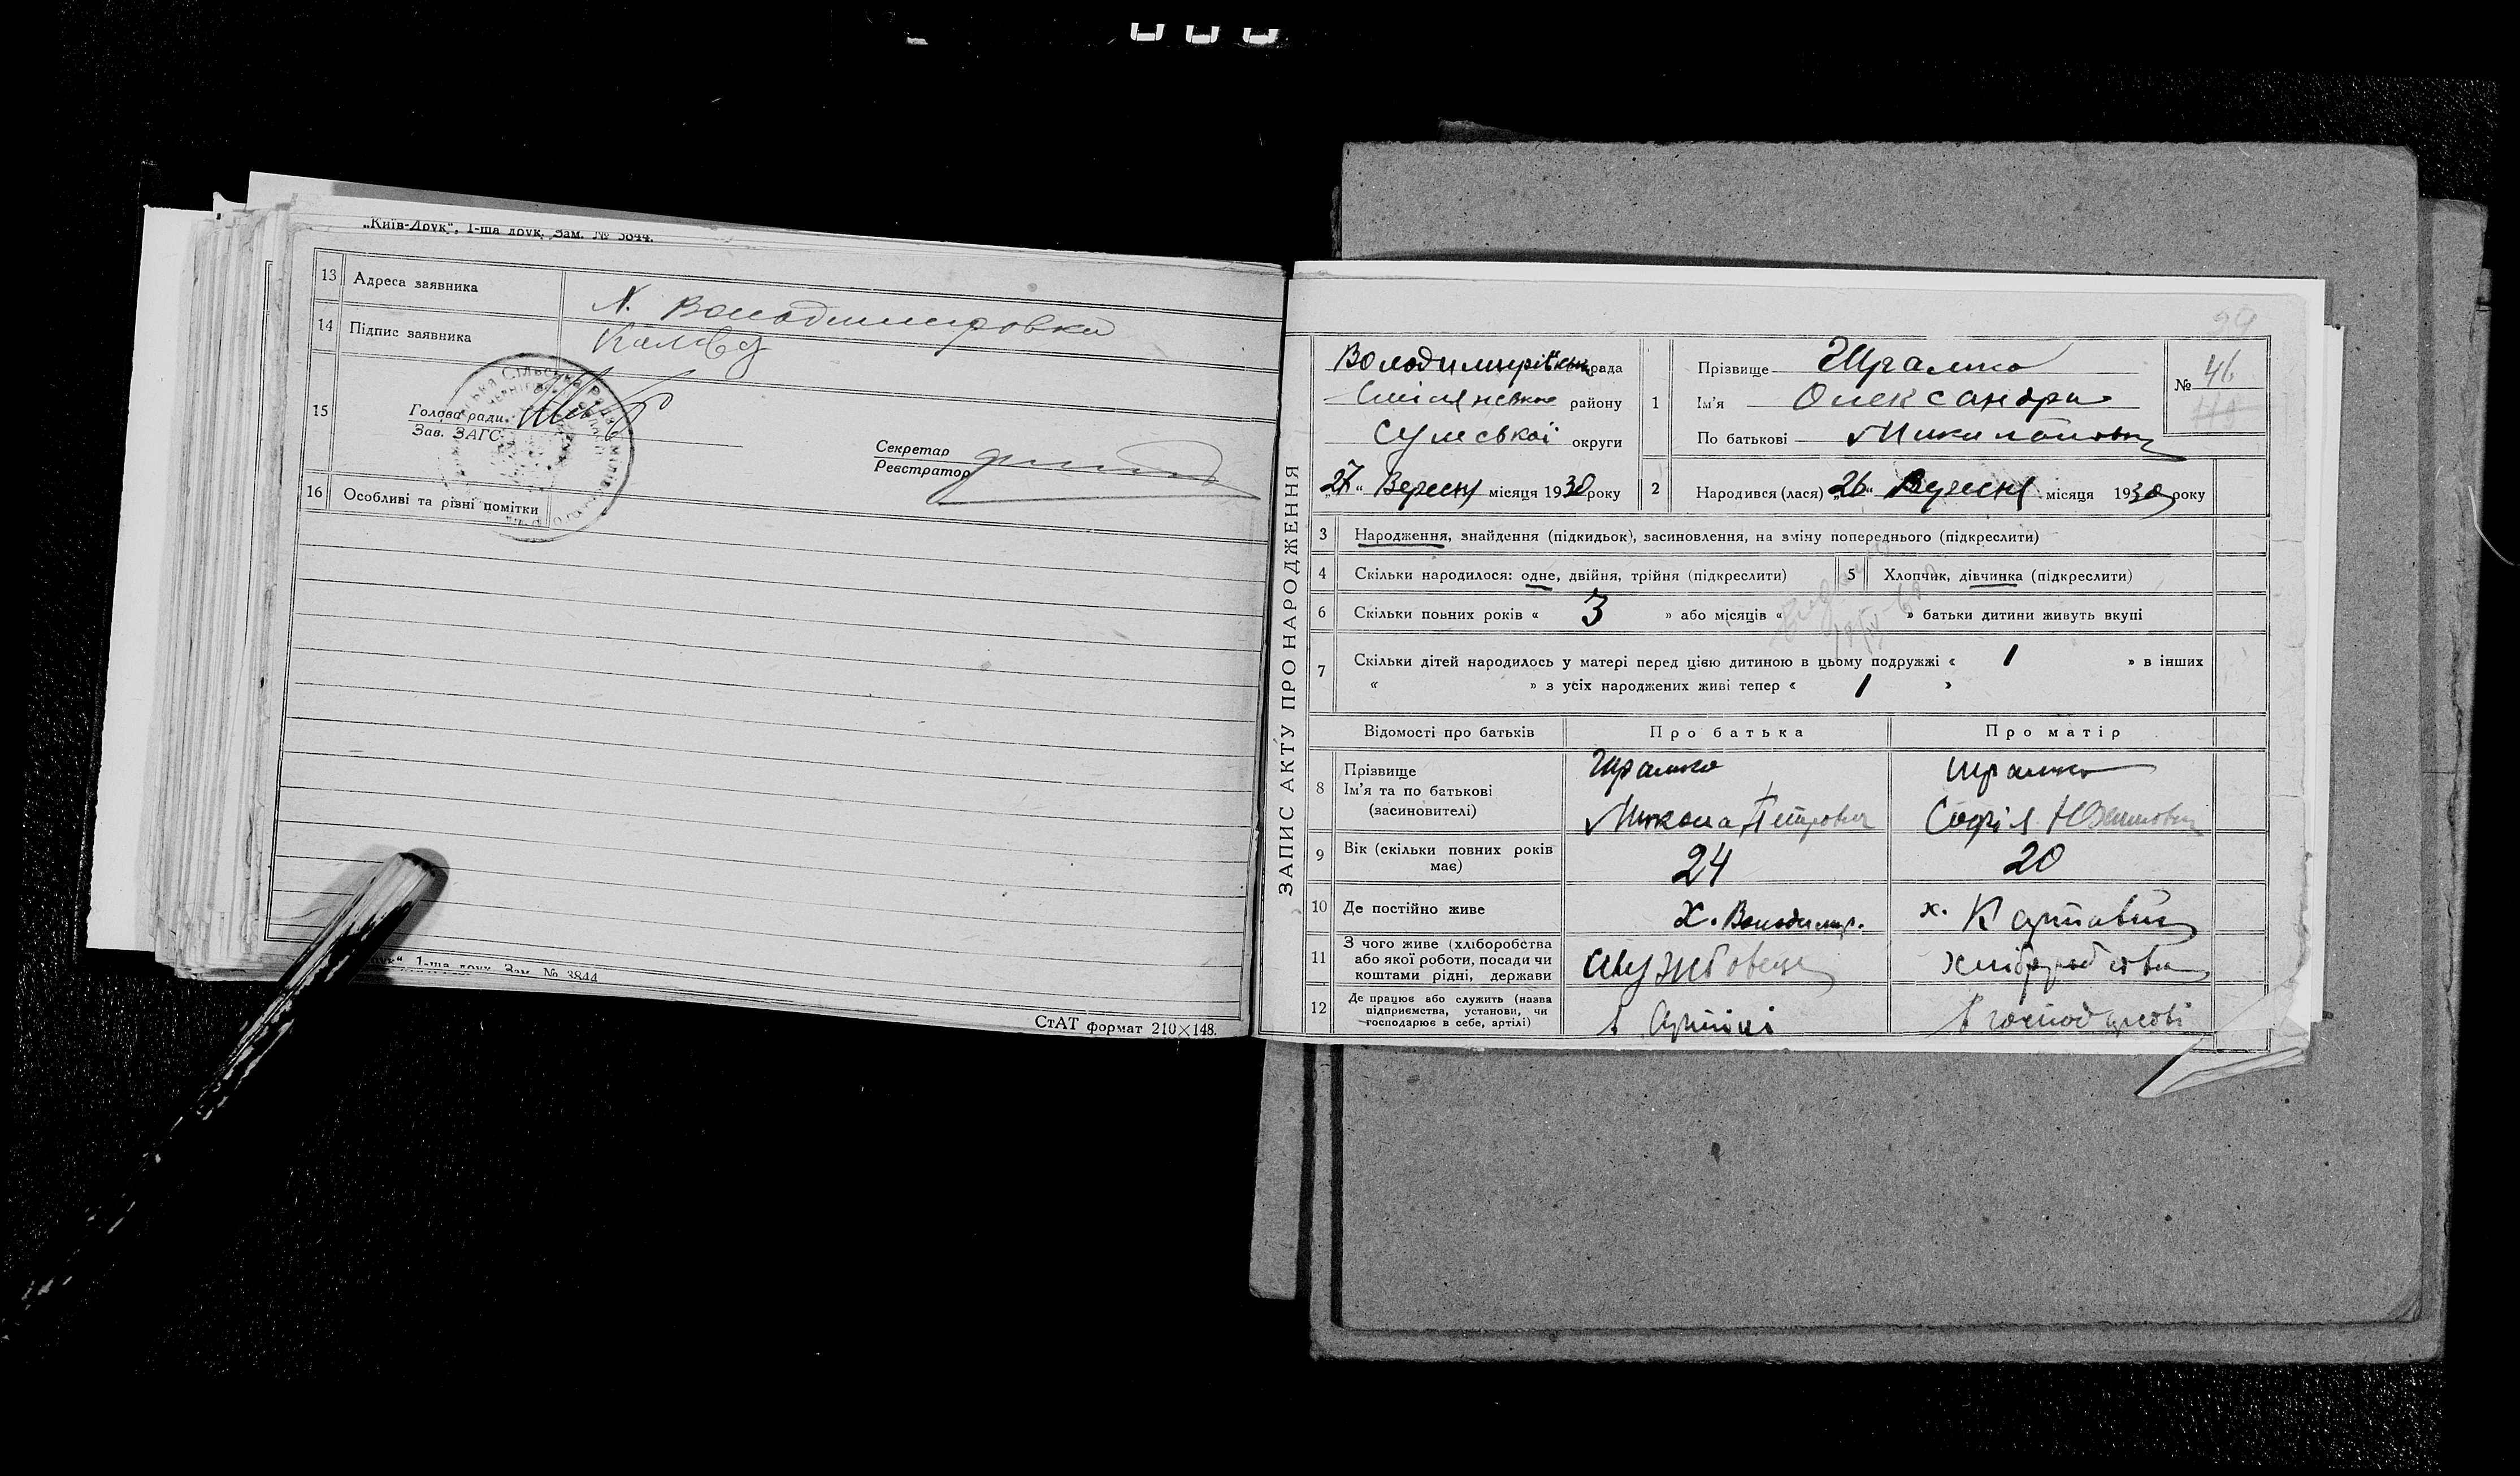 „Київ-Друк“, 1-ша друк. Зам. № 3844.
13 Адреса заявника
Х. Володимировка
14 Підпис заявника
15
Голова ради
Зав. ЗАГС
Секретар
Реєстратор
16 Особливі та різні помітки
1-ша друк. Зам. № 3844
СтАТ формат 210×148.
ЗАПИС АКТУ ПРО НАРОДЖЕННЯ
Володимирівська рада
району
Сумської округи
„27“ Вересня місяця 1930 року
1 Прізвище Шрамко
Ім'я Олександра
По батькові Миколаївна
№ 46
2 Народився (лася) „26“ Вересня місяця 1930 року
3 Народження, знайдення (підкидьок), засиновлення, на зміну попереднього (підкреслити)
4 Скільки народилося: одне, двійня, трійня (підкреслити) 5 Хлопчик, дівчинка (підкреслити)
6 Скільки повних років « 3 » або місяців « » батьки дитини живуть вкупі
7 Скільки дітей народилось у матері перед цією дитиною в цьому подружжі « 1 » в інших
« » з усіх народжених живі тепер « 1 »
Відомості про батьків Про батька Про матір
8 Прізвище Шрамко Шрамко
Ім'я та по батькові
(засиновителі) Микола Петрович Софія
9 Вік (скільки повних років має) 24 20
10 Де постійно живе х. Володимир. х.
11 З чого живе (хліборобства
або якої роботи, посади чи
коштами рідні, держави Службовець хліборобства
12 Де працює або служить (назва
підприємства, установи, чи
господарює в себе, артілі) в Артілі в господарстві